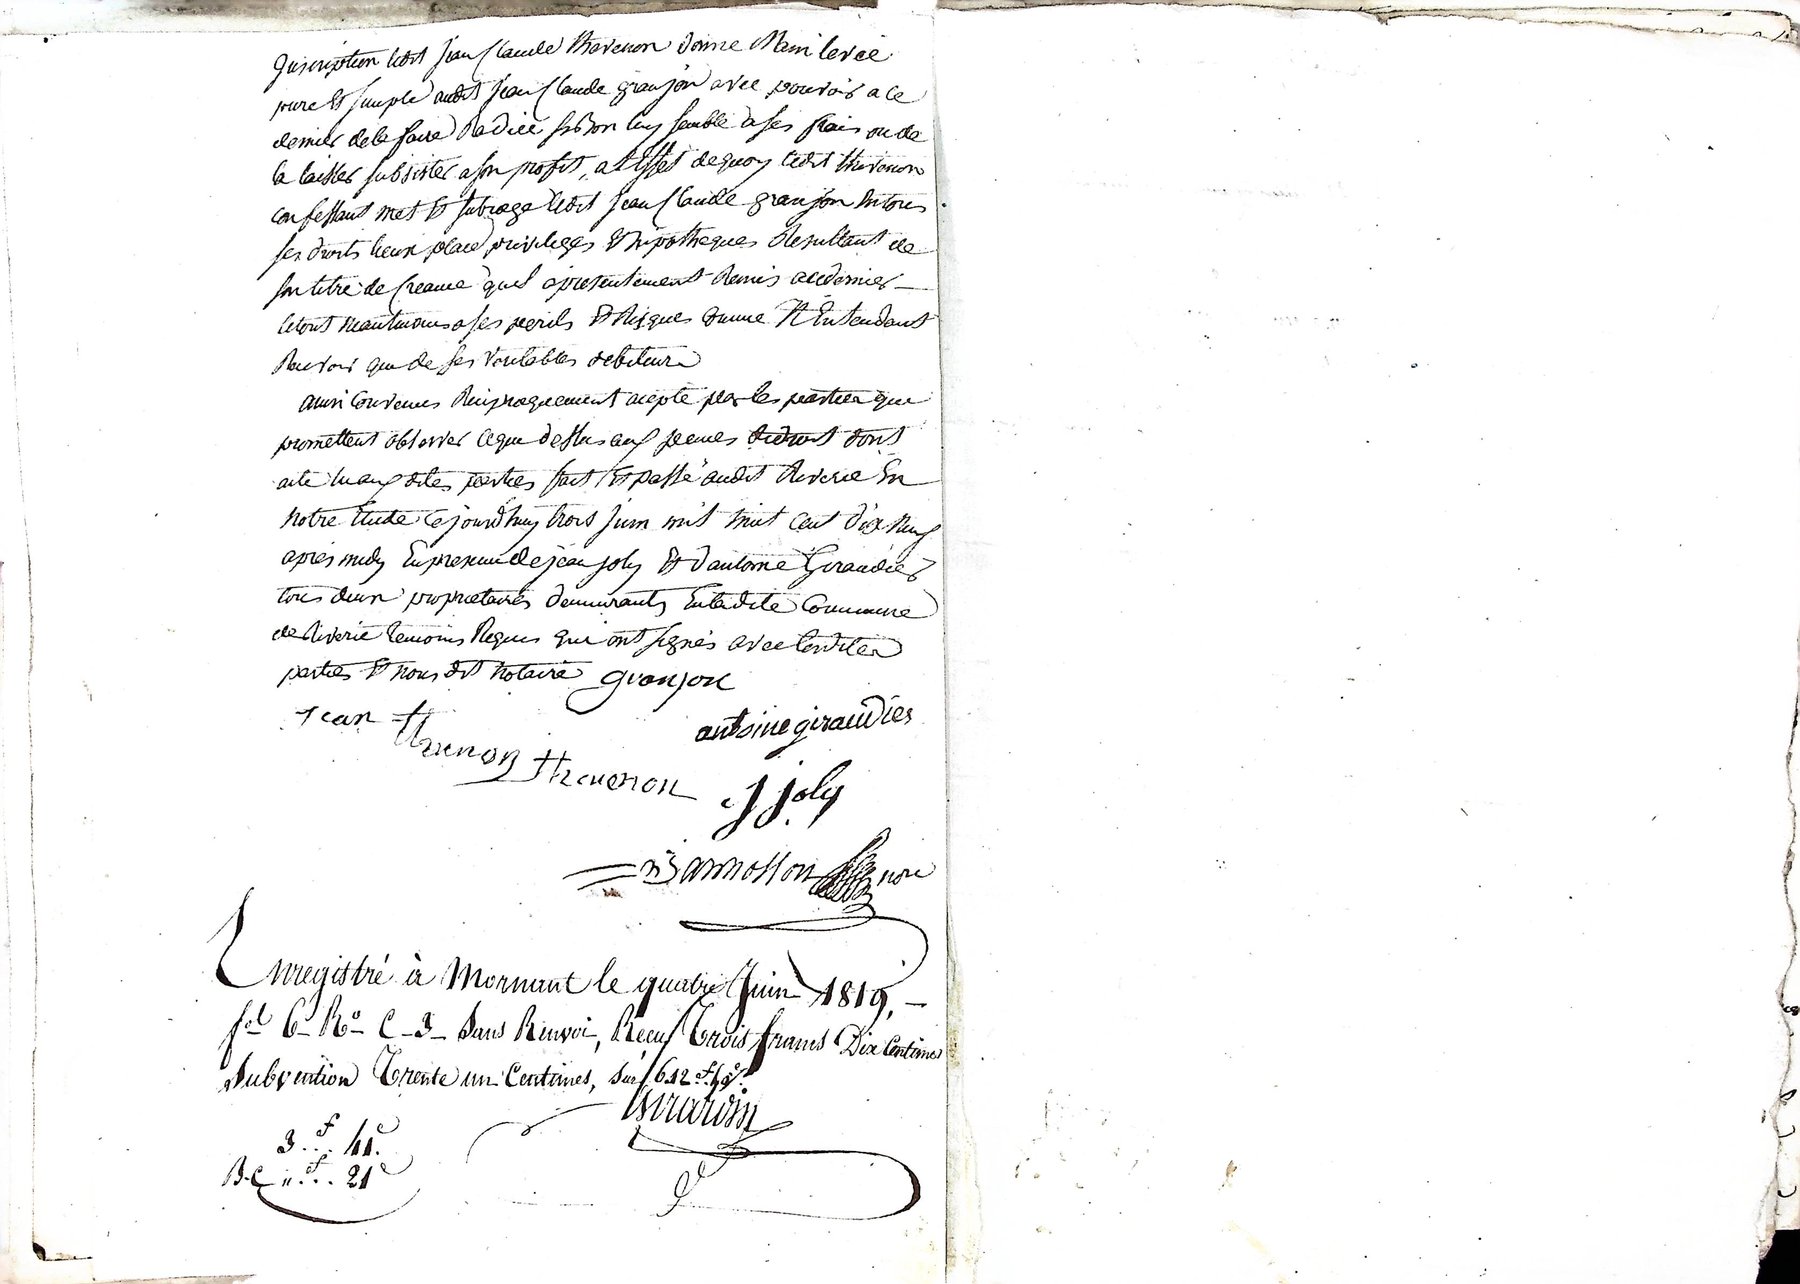 inscription ledit jean Claude thevenon donne Main levée
pure et simple audit jean Claude granjon avec pouvoir a ce
dernier de la faire Radiée si bon luy semble a ses frais ou de
la laisser subsister a son profit, a l'effet de quoy ledit thevenon
confessant met et subroge ledit jean Claude granjon en tous
ses droits lieux place privileges et hipotheques Resultant de
son titre de Creance qu'il a presentement Remis a ce dernier
le tout neantmoins a ses perils et Risques comme N'Entendant
pouvoir que de ses veritables debiteurs
ainsi Convenus Reciproquement acepté par les parties que
promettent observer ce que dessus aux peines de droit dont
acte lu aux dites parties fait et passé audit Riverie En
notre Etude Ce jourd'huy trois juin mil huit cent dix Neuf
apres midy En presence de jean joly et d'antoine Giraudier
tous deux propriétaires demeurants En la dite Commune
de Riverie temoins Requis qui ont signés avec lesdites
parties et nous dit Notaire granjon
jean thevenon
antoine giraudier
thevenon
J joly
Bannosson nore
Enregistré à Mornant le quatre Juin 1819,
fol 6 Ro C 3 Sans Renvoi, Reçu Trois francs Dix Centimes
Subvention Trente un Centimes, sur 612 f
Girardin
3 f 41 c
B.C " f 21 c